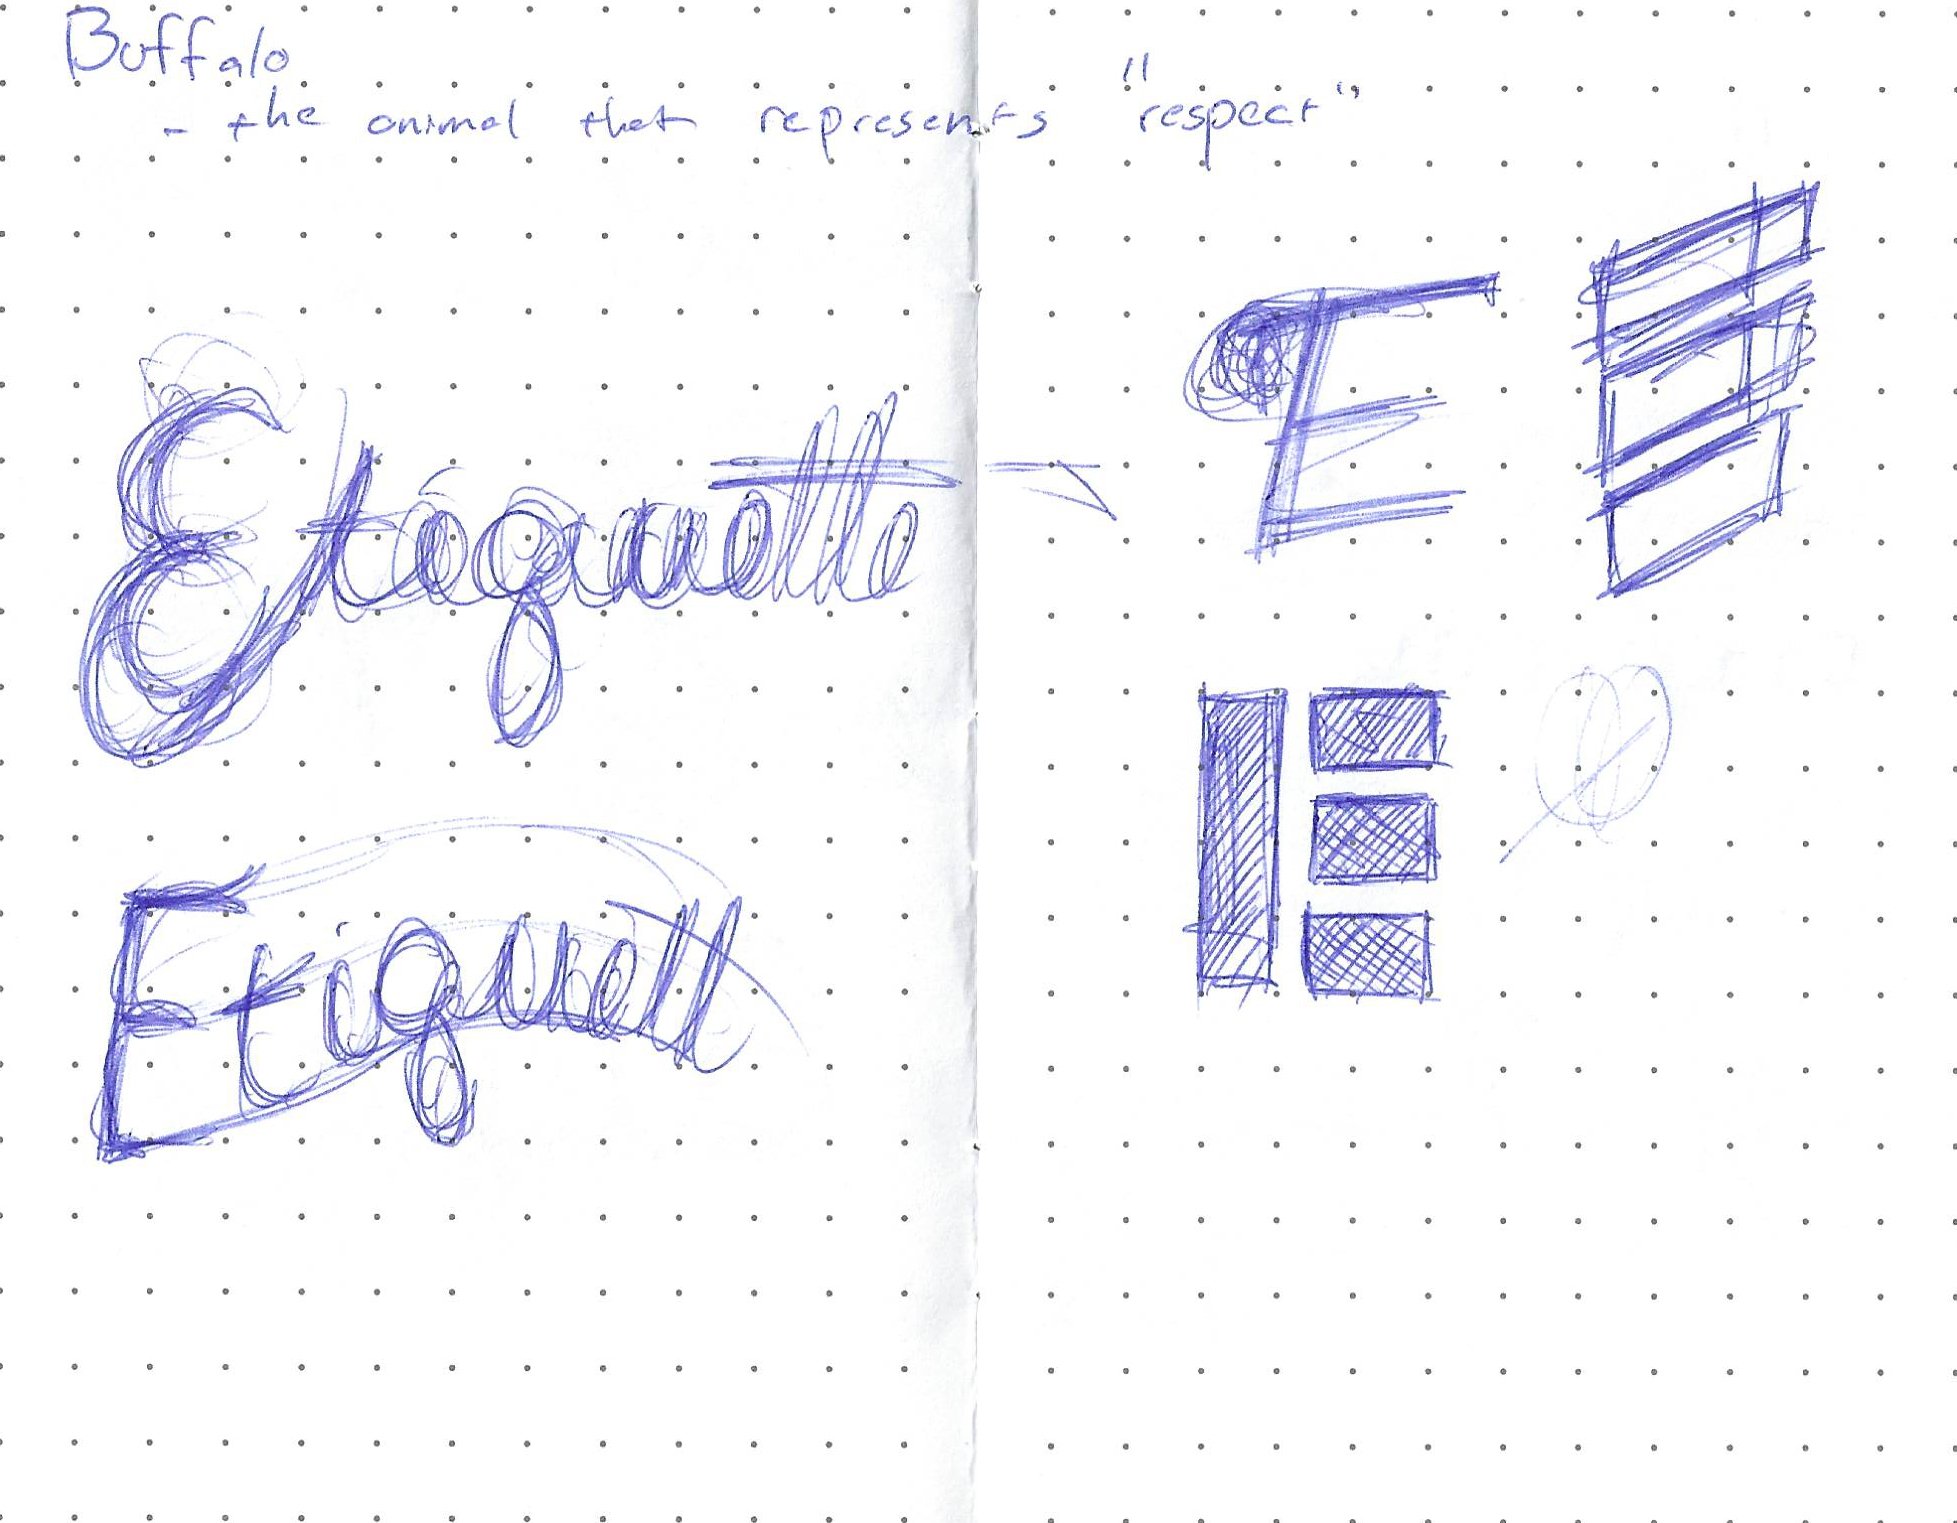 Buffalo
- the animal that represents "respect"
Etiquette
E
Etiquett
E